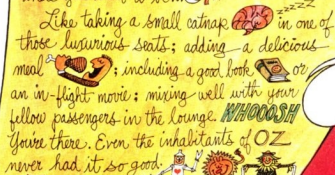 Like taking a small catnap in one of
those luxurious seats; adding a delicious
meal ; including a good book or
an in-flight movie; mixing well with your
fellow passengers in the lounge. WHOOOSH
You're there. Even the inhabitants of OZ
never had it so good.